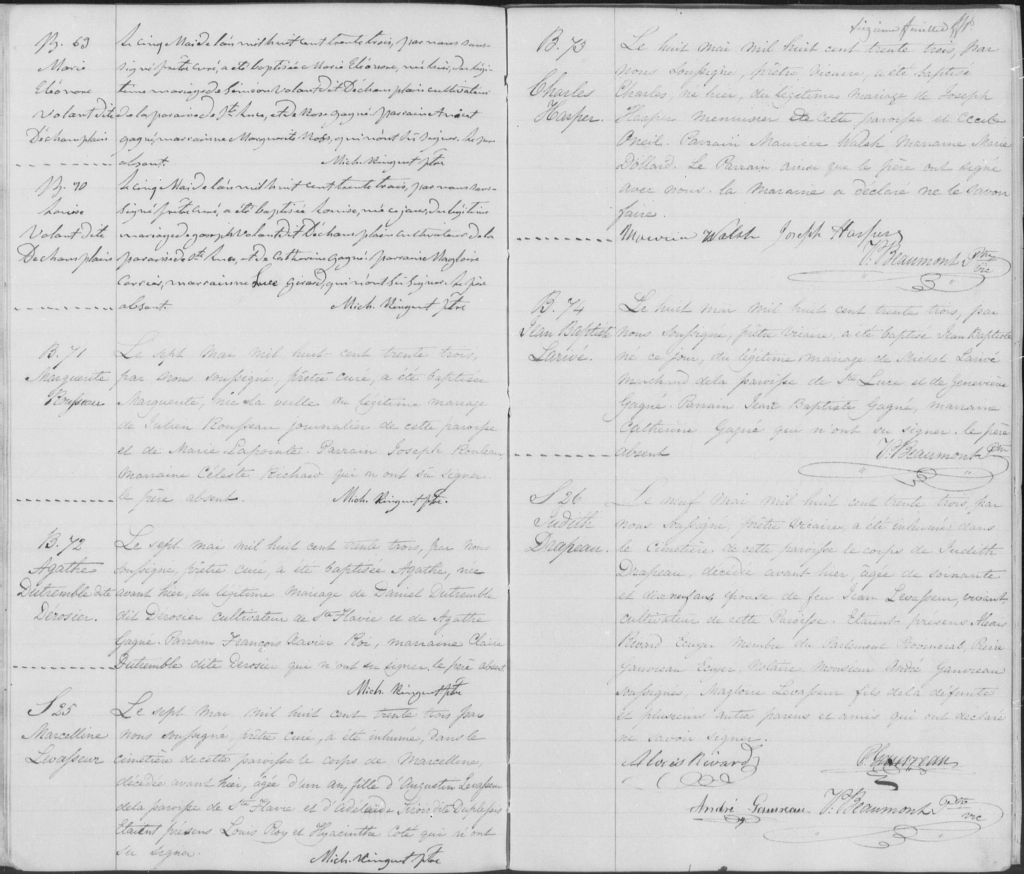 B. 69
Marie
Eléonore
Volant dite
Déchamplain
Le cinq Mai de l'an mil huit cent trente trois, par nous sous-
signé prêtre curé, a été baptisée Marie Eléonore, née hier, du légi-
time mariage de Samson Volant dit Déchamplain cultivateur
de la paroisse de Ste Luce, et de Rose Gagné parrain
Gagné, marraine Marguerite Ross, qui n'ont su signer. Le père
absent. Mich. Ringuet ptre
B. 70
Louise
Volant dite
Dechamplain
Le cinq Mai de l'an mil huit cent trente trois, par nous sous-
signé prêtre curé, a été baptisée Louise, née ce jour, du légitime
mariage de Joseph Volant dit Déchamplain cultivateur de la
paroisse de Ste Luce, et de Catherine Gagné parrain Magloire
marraine Luce Gérard, qui n'ont su signer. Le père
absent. Mich. Ringuet ptre
B. 71
Marguerite
Rousseau
Le sept mai mil huit cent trente trois,
par nous soussigné, prêtre curé, a été baptisée
Marguerite, née la veille du légitime mariage
de Julien Rousseau journalier de cette paroisse
et de Marie Lapointe. Parrain Joseph Rouleau,
Marraine Céleste Richard qui n'ont su signer
le père absent. Mich. Ringuet ptre.
B. 72
Agathe
Dutremble dite
Dérosier.
Le sept mai mil huit cent trente trois, par nous
soussigné, prêtre curé, a été baptisée Agathe, née
avant hier, du légitime mariage de Daniel Dutremble
dit Dérosier Cultivateur de Ste Flavie et de Agathe
Gagné. Parrain François Xavier Roi, marraine Claire
Dutremble dite Dérosier qui n'ont su signer, le père absent
Mich. Ringuet ptre
S 25
Marcelline
Levasseur
Le sept mai mil huit cent trente trois par
nous soussigné, prêtre curé, a été inhumé, dans le
cimetière de cette paroisse le corps de Marcelline,
décédée avant hier, âgée d'un an, fille d'Augustin Levasseur
de la paroisse de Ste Flavie et d'Adélaïde
Etaient présens Louis Roy et Hyacinthe Coté qui n'ont
su signer. Mich. Ringuet ptre
Sixième feuillet
B. 73
Charles
Harper.
Le huit mai mil huit cent trente trois, par
nous soussigné, prêtre vicaire, a été baptisé
Charles, né hier, du légitime mariage de Joseph
Harper menuisier de cette paroisse et Cecile
Oneil. Parrain Maurice Walsh Marraine Marie
Dollard. Le Parrain ainsi que le père ont signé
avec nous. la Marraine a déclaré ne le savoir
faire.
Walsh Joseph Harper
J. Beaumont Ptre
vic
B. 74
Jean Baptiste
Larivé.
Le huit mai mil huit cent trente trois, par
nous soussigné, prêtre vicaire, a été baptisé Jean Baptiste
né ce jour, du légitime mariage de Michel Larivé
Marchand de la paroisse de Ste Luce et de Geneviève
Gagné. Parrain Jean Baptiste Gagné, marraine
Catherine Gagné qui n'ont su signer. le père
absent J. Beaumont Ptre
S 26
Judith
Drapeau.
Le neuf mai mil huit cent trente trois, par
nous soussigné, prêtre vicaire, a été inhumé dans
le cimetière de cette paroisse le corps de Judith
Drapeau, décédée avant hier, âgée de soixante
et épouse de feu Jean Levasseur, vivant
cultivateur de cette Paroisse. Etaient présens
Rivard Ecuyer Membre du Parlement Provincial, Pierre
Gauvreau Ecuyer, Notaire Monsieur André Gauvreau
soussignés, Magloire Levasseur fils de la défunte
et plusieurs autre parens et amis qui ont déclaré
ne savoir signer.
Rivard P. Gauvreau
André Gauvreau J. Beaumont Ptre
vic